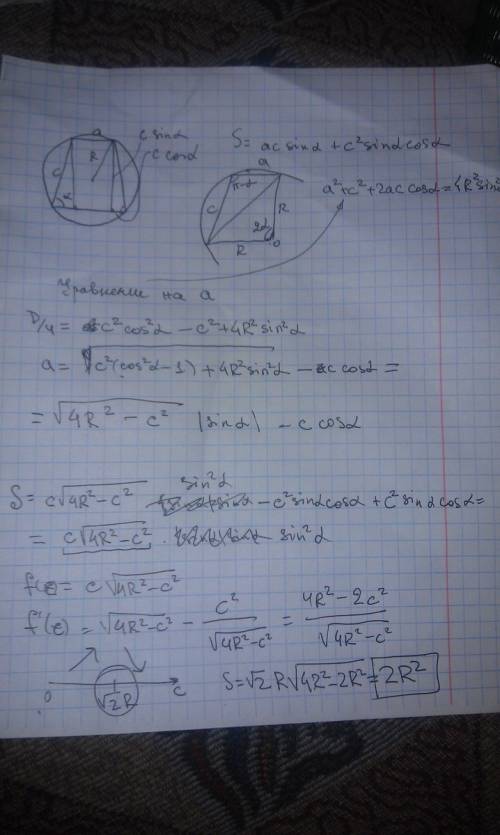 a
c sinα
c cosα
R
c
α
S = ac sinα + c² sinα cosα
a
π-α
c
R
2α
R
O
a²+c²+2ac cosα = 4R² sin²
Уравнение на a
D/4 = c² cos²α - c² + 4R² sin²α
a = √(c²(cos²α-1) + 4R² sin²α) - c cosα =
= √(4R² - c²) |sinα| - c cosα
S = c√(4R² - c²) sin²α - c² sinα cosα + c² sinα cosα =
= c√(4R² - c²) · sin²α
f(c) = c√(4R² - c²)
f'(c) = √(4R² - c²) - c²/√(4R² - c²) = (4R² - 2c²)/√(4R² - c²)
0 √2R c
S = √2 R√(4R² - 2R²) = 2R²